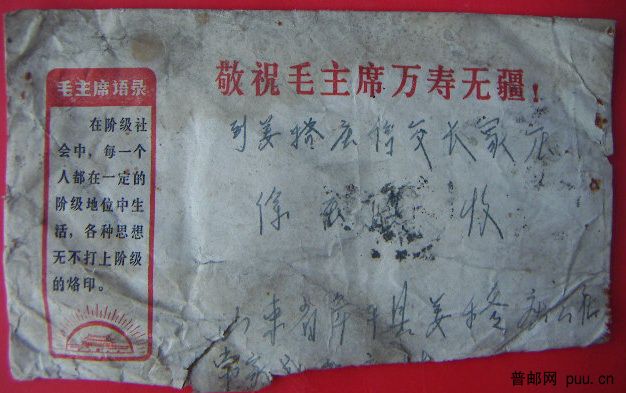 敬祝毛主席万寿无疆!
毛主席语录
在阶级社
会中，每一个
人都在一定的
阶级地位中生
活，各种思想
无不打上阶级
的烙印。
到姜楼店 交长家
徐 收
山东省 平县姜楼 公社
普邮网 puu.cn